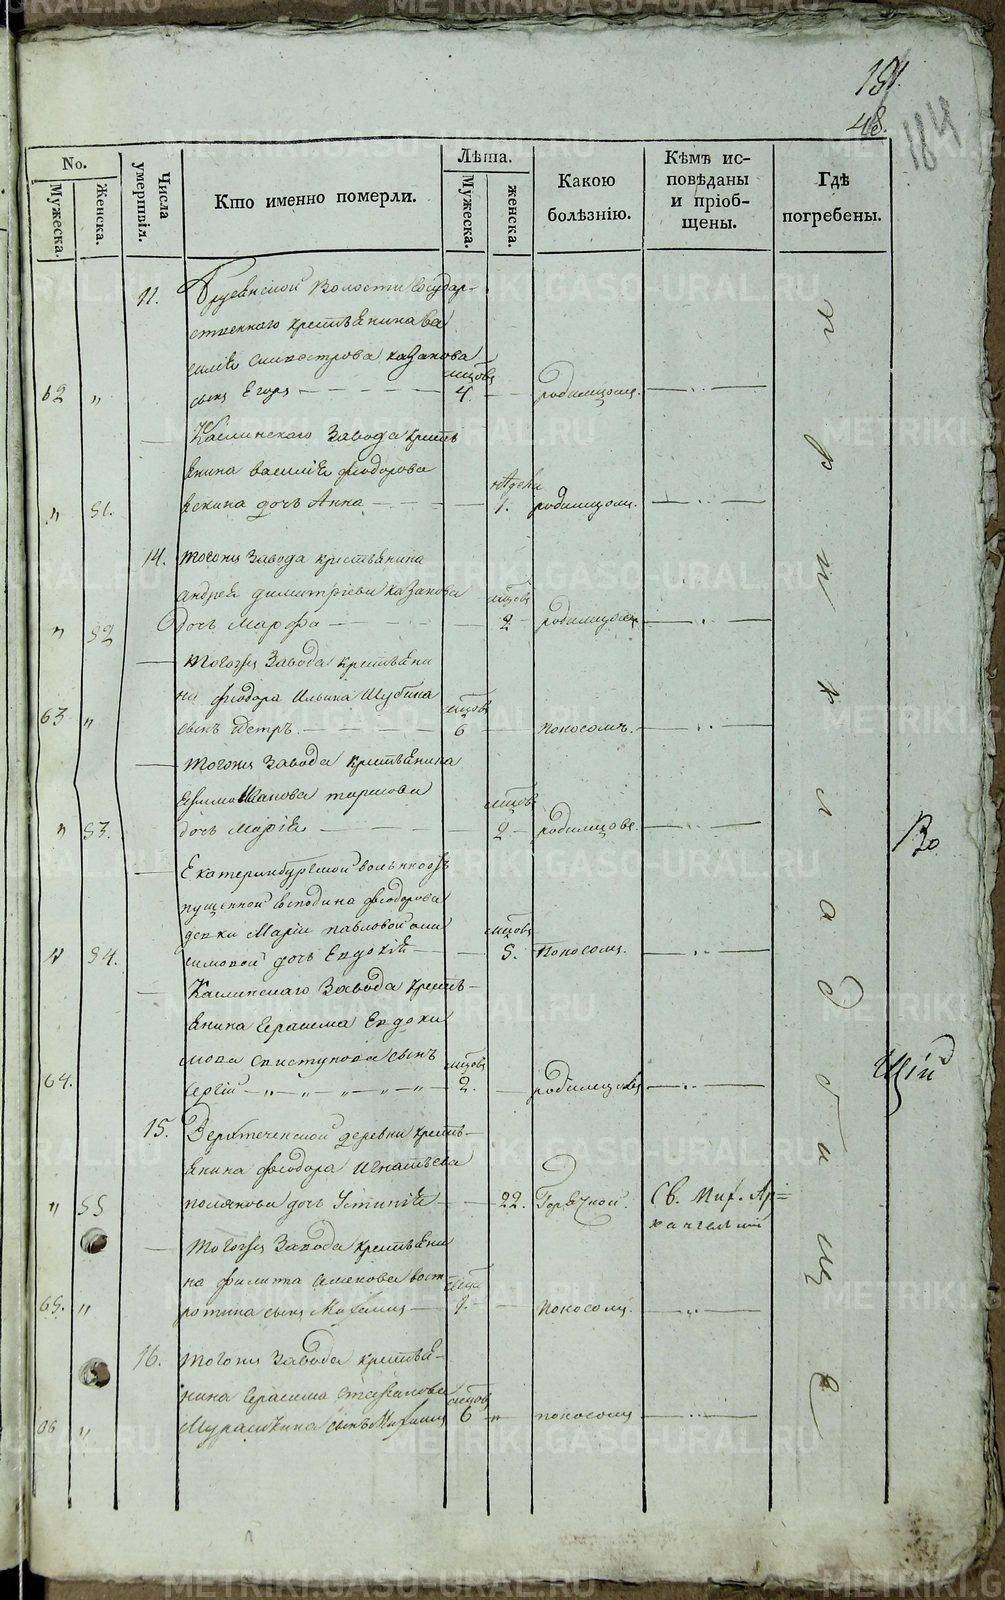 191.
48.
184
No.
Мужеска.
Женска.
Числа умертвія.
Кто именно померли.
Лѣта.
Мужеска.
женска.
Какою болѣзнію.
Кѣмъ исповѣданы и пріобщены.
Гдѣ погребены.
11.
волости государ-
ственнаго крестьянина ва
силія казакова
62 „ сынъ Егоръ мцовъ 4. родимцомъ.
Каслинскаго Завода кресть
янина василія феодорова
„ 51. дочь Анна недели 1. родимцомъ.
14. тогожъ Завода крестьянина
андрея димитріева казакова
„ 52 Дочь Марфа мцовъ 2 родимцомъ
тогожъ Завода крестьяни
на феодора Ильина Шубина
63 „ сынъ Петръ. мцовъ 6 поносомъ.
тогожъ Завода крестьянина
Ефима Иванова
„ 53. дочь Марія мцов 2 родимцовъ
Екатеринбургской вольноот
пущенной господина феодорова
девки Маріи павловой
„ 54. дочь Евдокія мцовъ 5. поносомъ.
Каслинскаго Завода кресть-
янина Герасима Евдоки
мова свистунова сынъ
64. Сергій мцовъ 2. родимцовъ
15. деревни кресть-
янина феодора Игнатьева
„ 55 полякова дочь Устинія 22. Горячкой. Св. Мих. Ар=
хангельскій
тогожъ Завода крестьяни
на филипа вост
65. „ ротина сынъ Михаилъ 1. поносомъ.
16. тогожъ Завода крестья-
нина Герасима
66 „ Мурашкина сынъ Михаилъ мцовъ 6 поносомъ
при кладбище
Во
Щій
METRIKI.GASO-URAL.RU